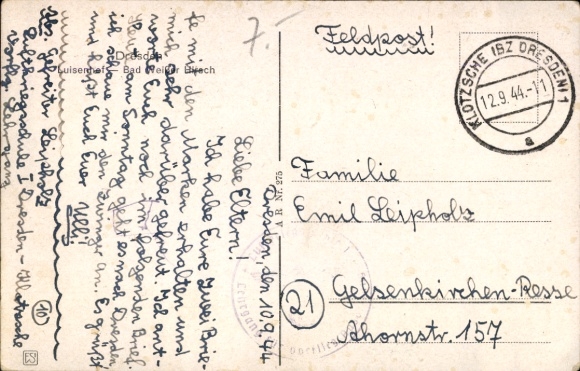 7.-
Feldpost!
KLOTZSCHE (BZ DRESDEN) 1
12.9.44.-11
a
Dresden
Luisenhof - Bad Weißer Hirsch
Dresden den 10.9.44
Liebe Eltern!
Ich habe Eure zwei Brie-
fe mit den Marken erhalten und
mich sehr darüber gefreut. Ich ant-
worte Euch noch im folgenden Brief.
Heute am Sonntag geht es nach Dresden,
ich schaue mir den Zwinger an. Es grüßt
und küßt Euch Euer
Ulli!
Abs. Gefreiter Leipholz
Luftkriegsschule I Dresden-Klotzsche
10
A R Nr. 275
Familie
Emil Leipholz
21
Gelsenkirchen-Resse
Ahornstr. 157